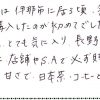 は伊那市に居る頃、
購入したのが初めてでし
とても気に入り長野
店舗やSAで必ず
甘さで、日本茶・コーヒーと